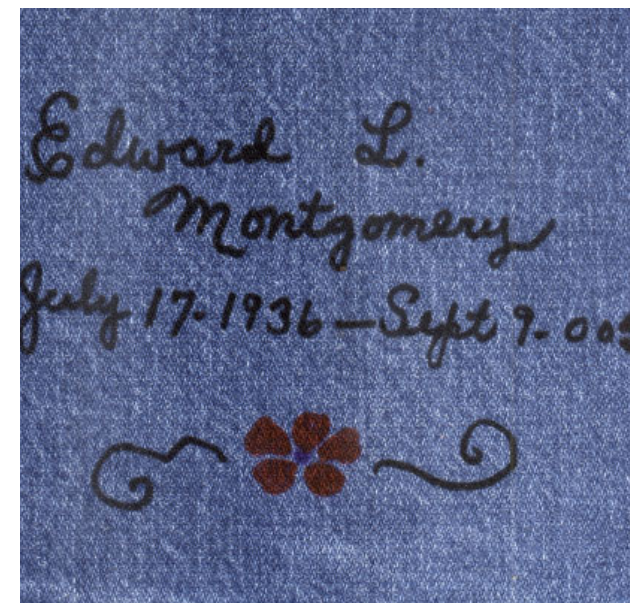 Edward L.
Montgomery
July 17-1936—Sept 9-005